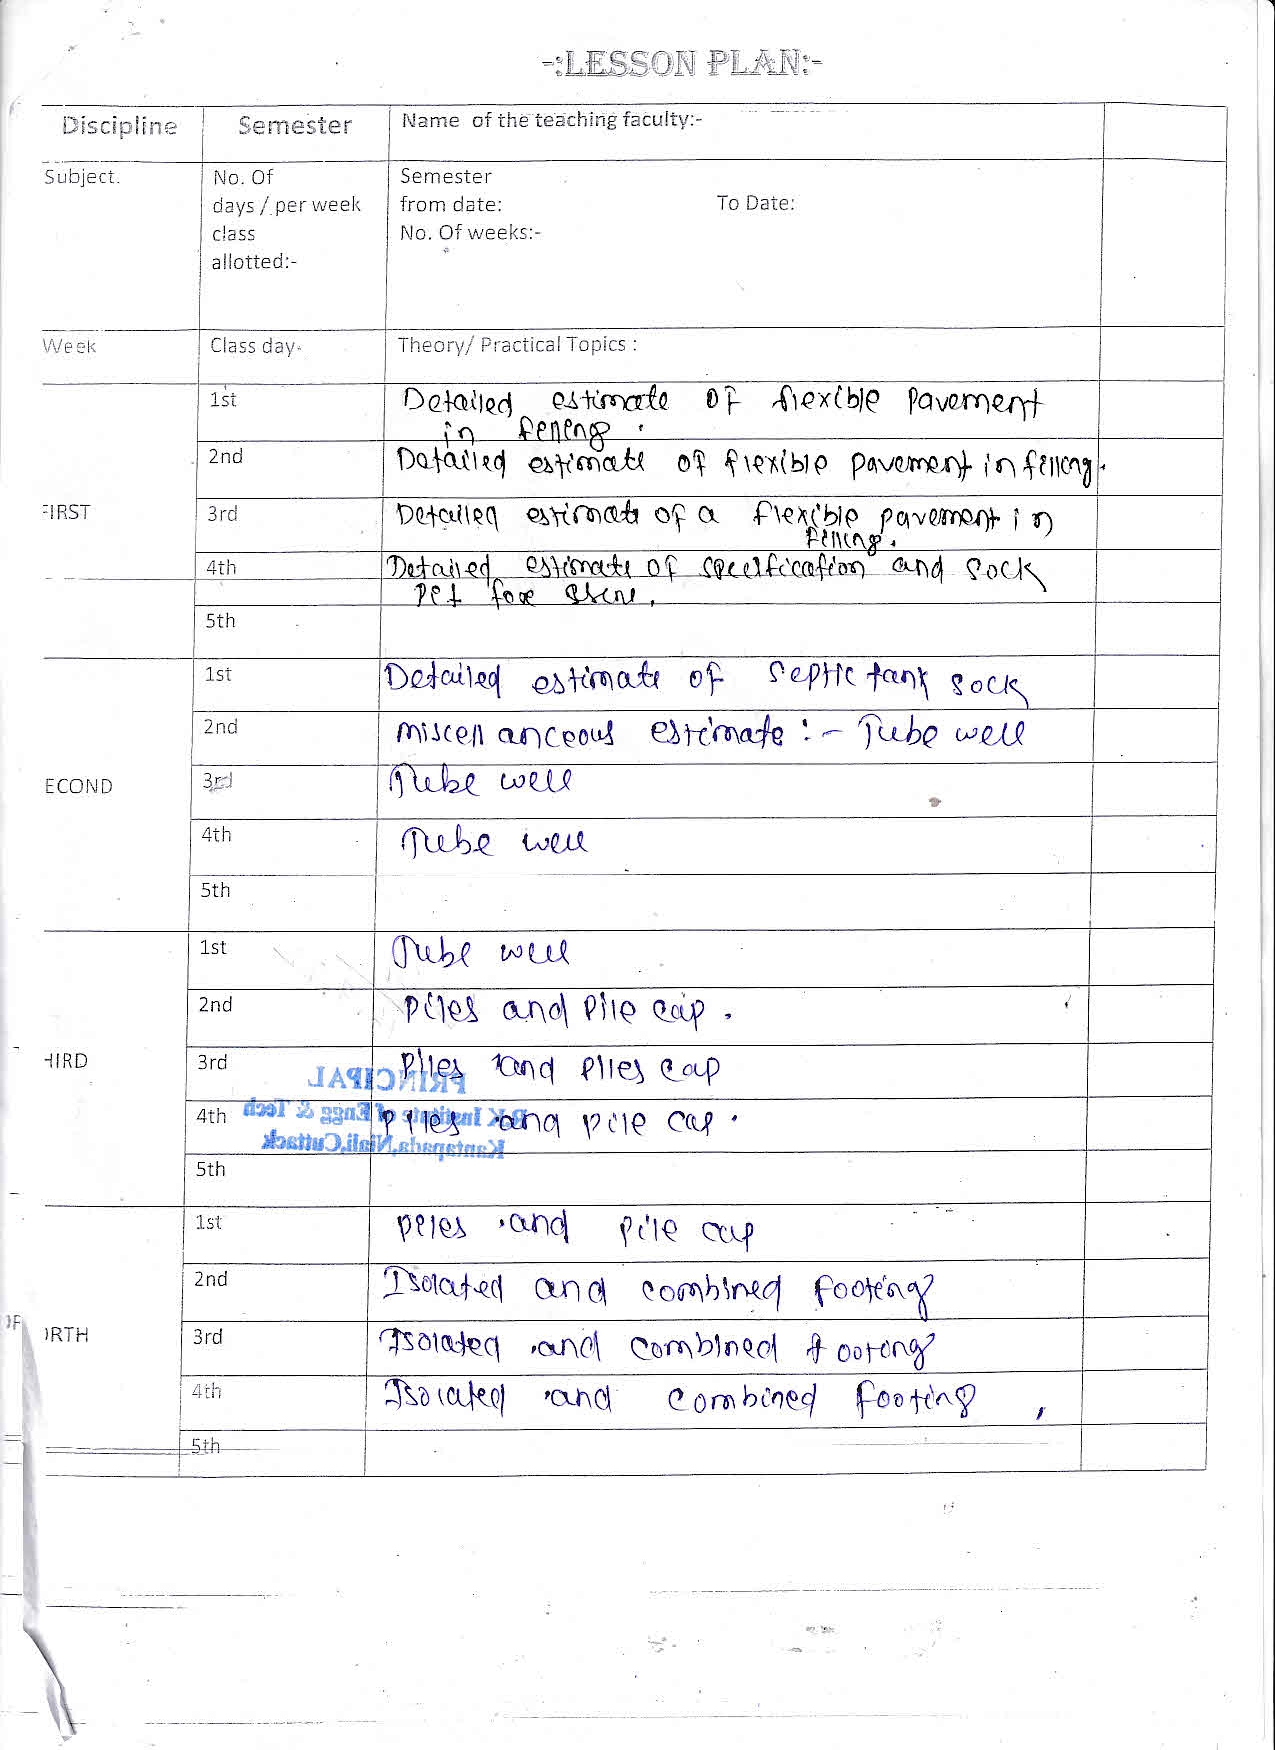 -:LESSON PLAN:-
Discipline Semester Name of the teaching faculty:-
Subject. No. Of days / per week class allotted:- Semester from date: To Date: No. Of weeks:-
Week Class day- Theory/ Practical Topics :
FIRST
1st Detailed estimate of flexible pavement
in
2nd Detailed estimate of flexible pavement in filling.
3rd Detailed estimate of a flexible pavement in
filling.
4th Detailed estimate of specification and sock
pet for
5th
ECOND
1st Detailed estimate of septic tank sock
2nd miscellanceous estimate :- Tube well
3rd Tube well
4th Tube well
5th
HIRD
1st Tube well
2nd Piles and Pile cap.
3rd Piles and Piles cap
4th Piles and pile cap.
5th
PRINCIPAL
B.K Institute of Engg & Tech
Kantapada,Niali,Cuttack
ORTH
1st Piles and pile cap
2nd Isolated and combined footing
3rd Isolated and combined footing
4th Isolated and combined footing,
5th